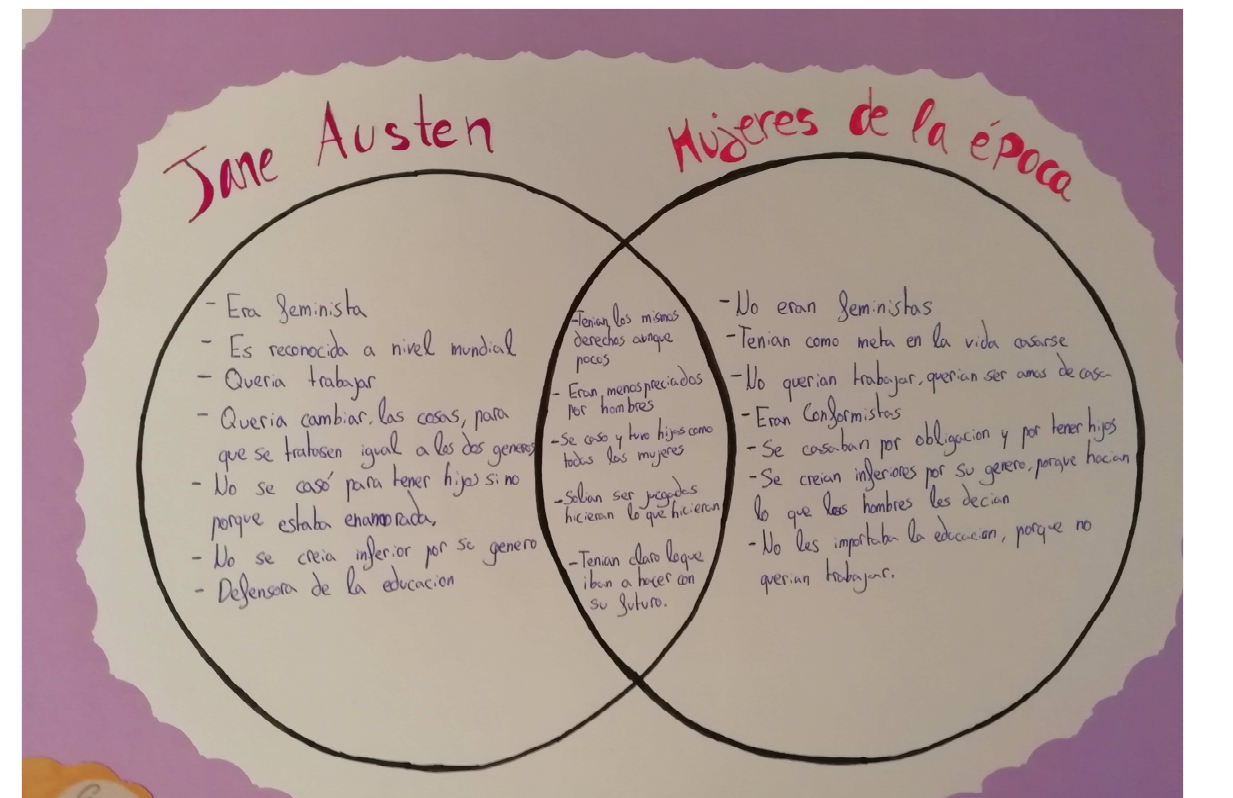 Jane Austen
- Era feminista
- Es reconocida a nivel mundial
- Queria trabajar
- Queria cambiar las cosas, para
que se tratasen igual a los dos generos
- No se casó para tener hijos si no
porque estaba enamorada,
- No se creia inferior por se genero
- Defensora de la educacion
- Tenian los mismos
derechos aunque
pocos
- Eran menospreciados
por hombres
- Se caso y tuvo hijos como
todas las mujeres
- Solian ser juzgados
hicieran lo que hicieran
- Tenian claro lo que
iban a hacer con
su futuro.
Mujeres de la época
- No eran feministas
- Tenian como meta en la vida casarse
- No querian trabajar, querian ser amas de casa
- Eran Conformistas
- Se casaban por obligacion y por tener hijos
- Se creian inferiores por su genero, porque hacian
lo que los hombres les decian
- No les importaba la educacion, porque no
querian trabajar.